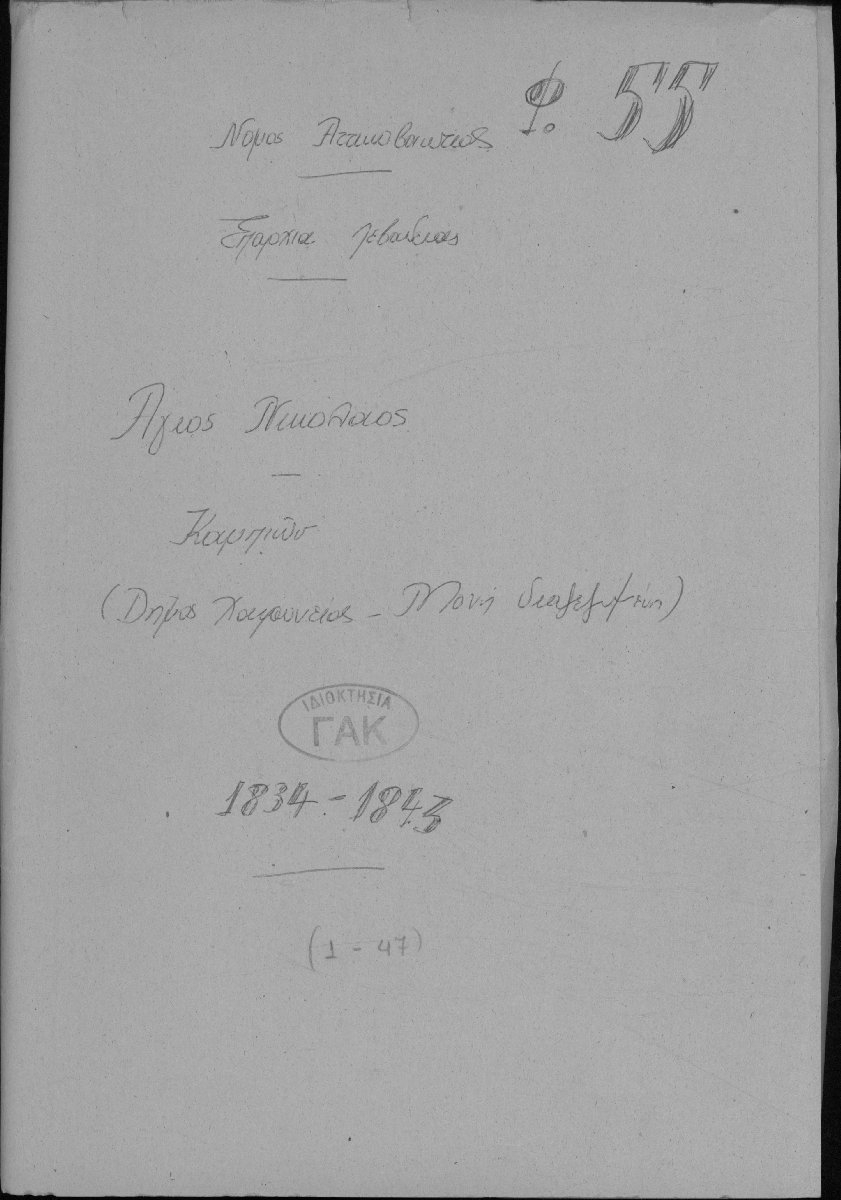 Φ. 55
Νομος Αττικοβοιωτιας
Επαρχια Λεβαδειας
Αγιος Νικολαος
Καμπιῶν
(Δῆμος Χαιρωνείας - Μονή διαλελυμένη)
ΙΔΙΟΚΤΗΣΙΑ
ΓΑΚ
1834 - 1843
(1 - 47)